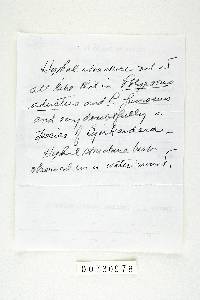 Hyphal structure not
all like that in Polyporus
adustus and P. fumosus
and very doubtfully a
species of Bjerkandera —
Hyphal structure best
observed in a water mount.
00130978